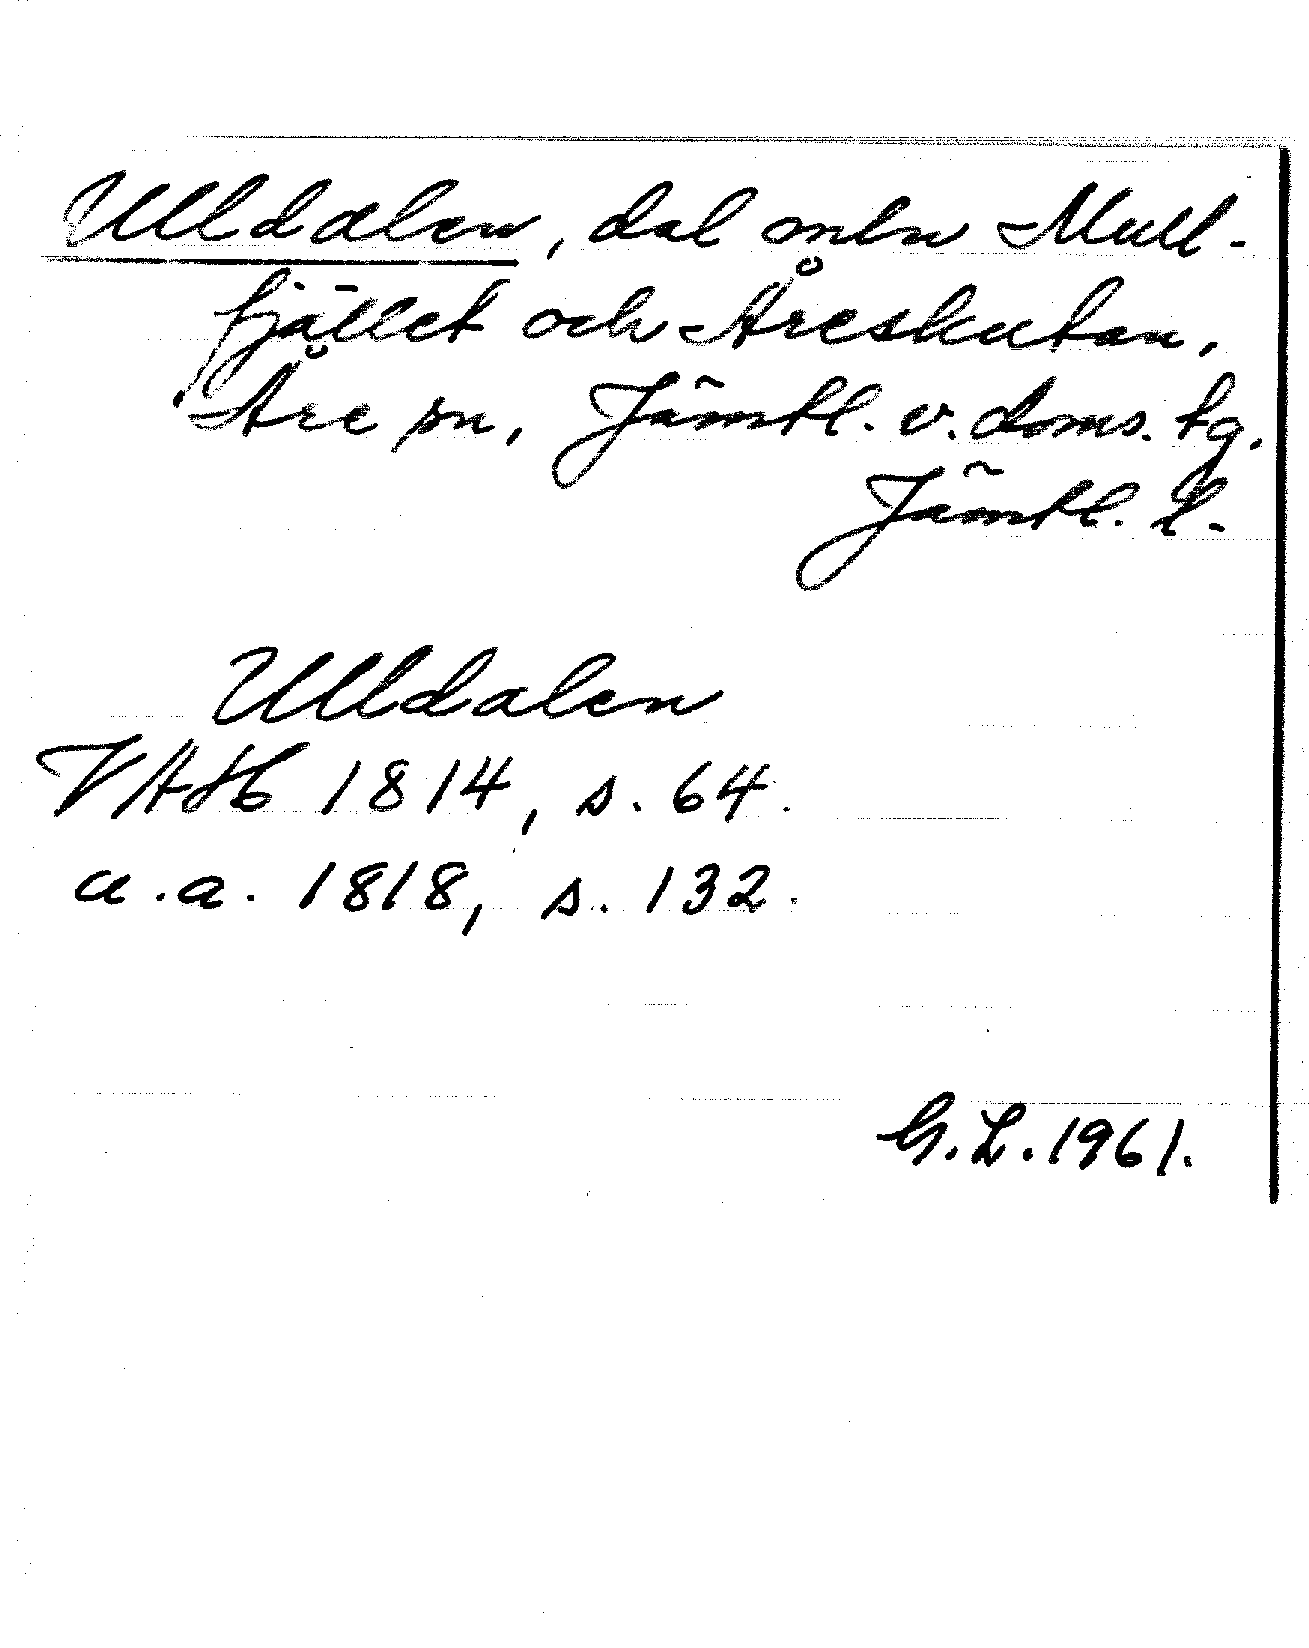 Ulldalen, dal mln Mull-
fjället och Åreskutan,
Åre sn, Jämtl. v. doms. tg.
Jämtl. l.
Ulldalen
VAH 1814, s. 64.
a.a. 1818, s. 132.
G.L. 1961.